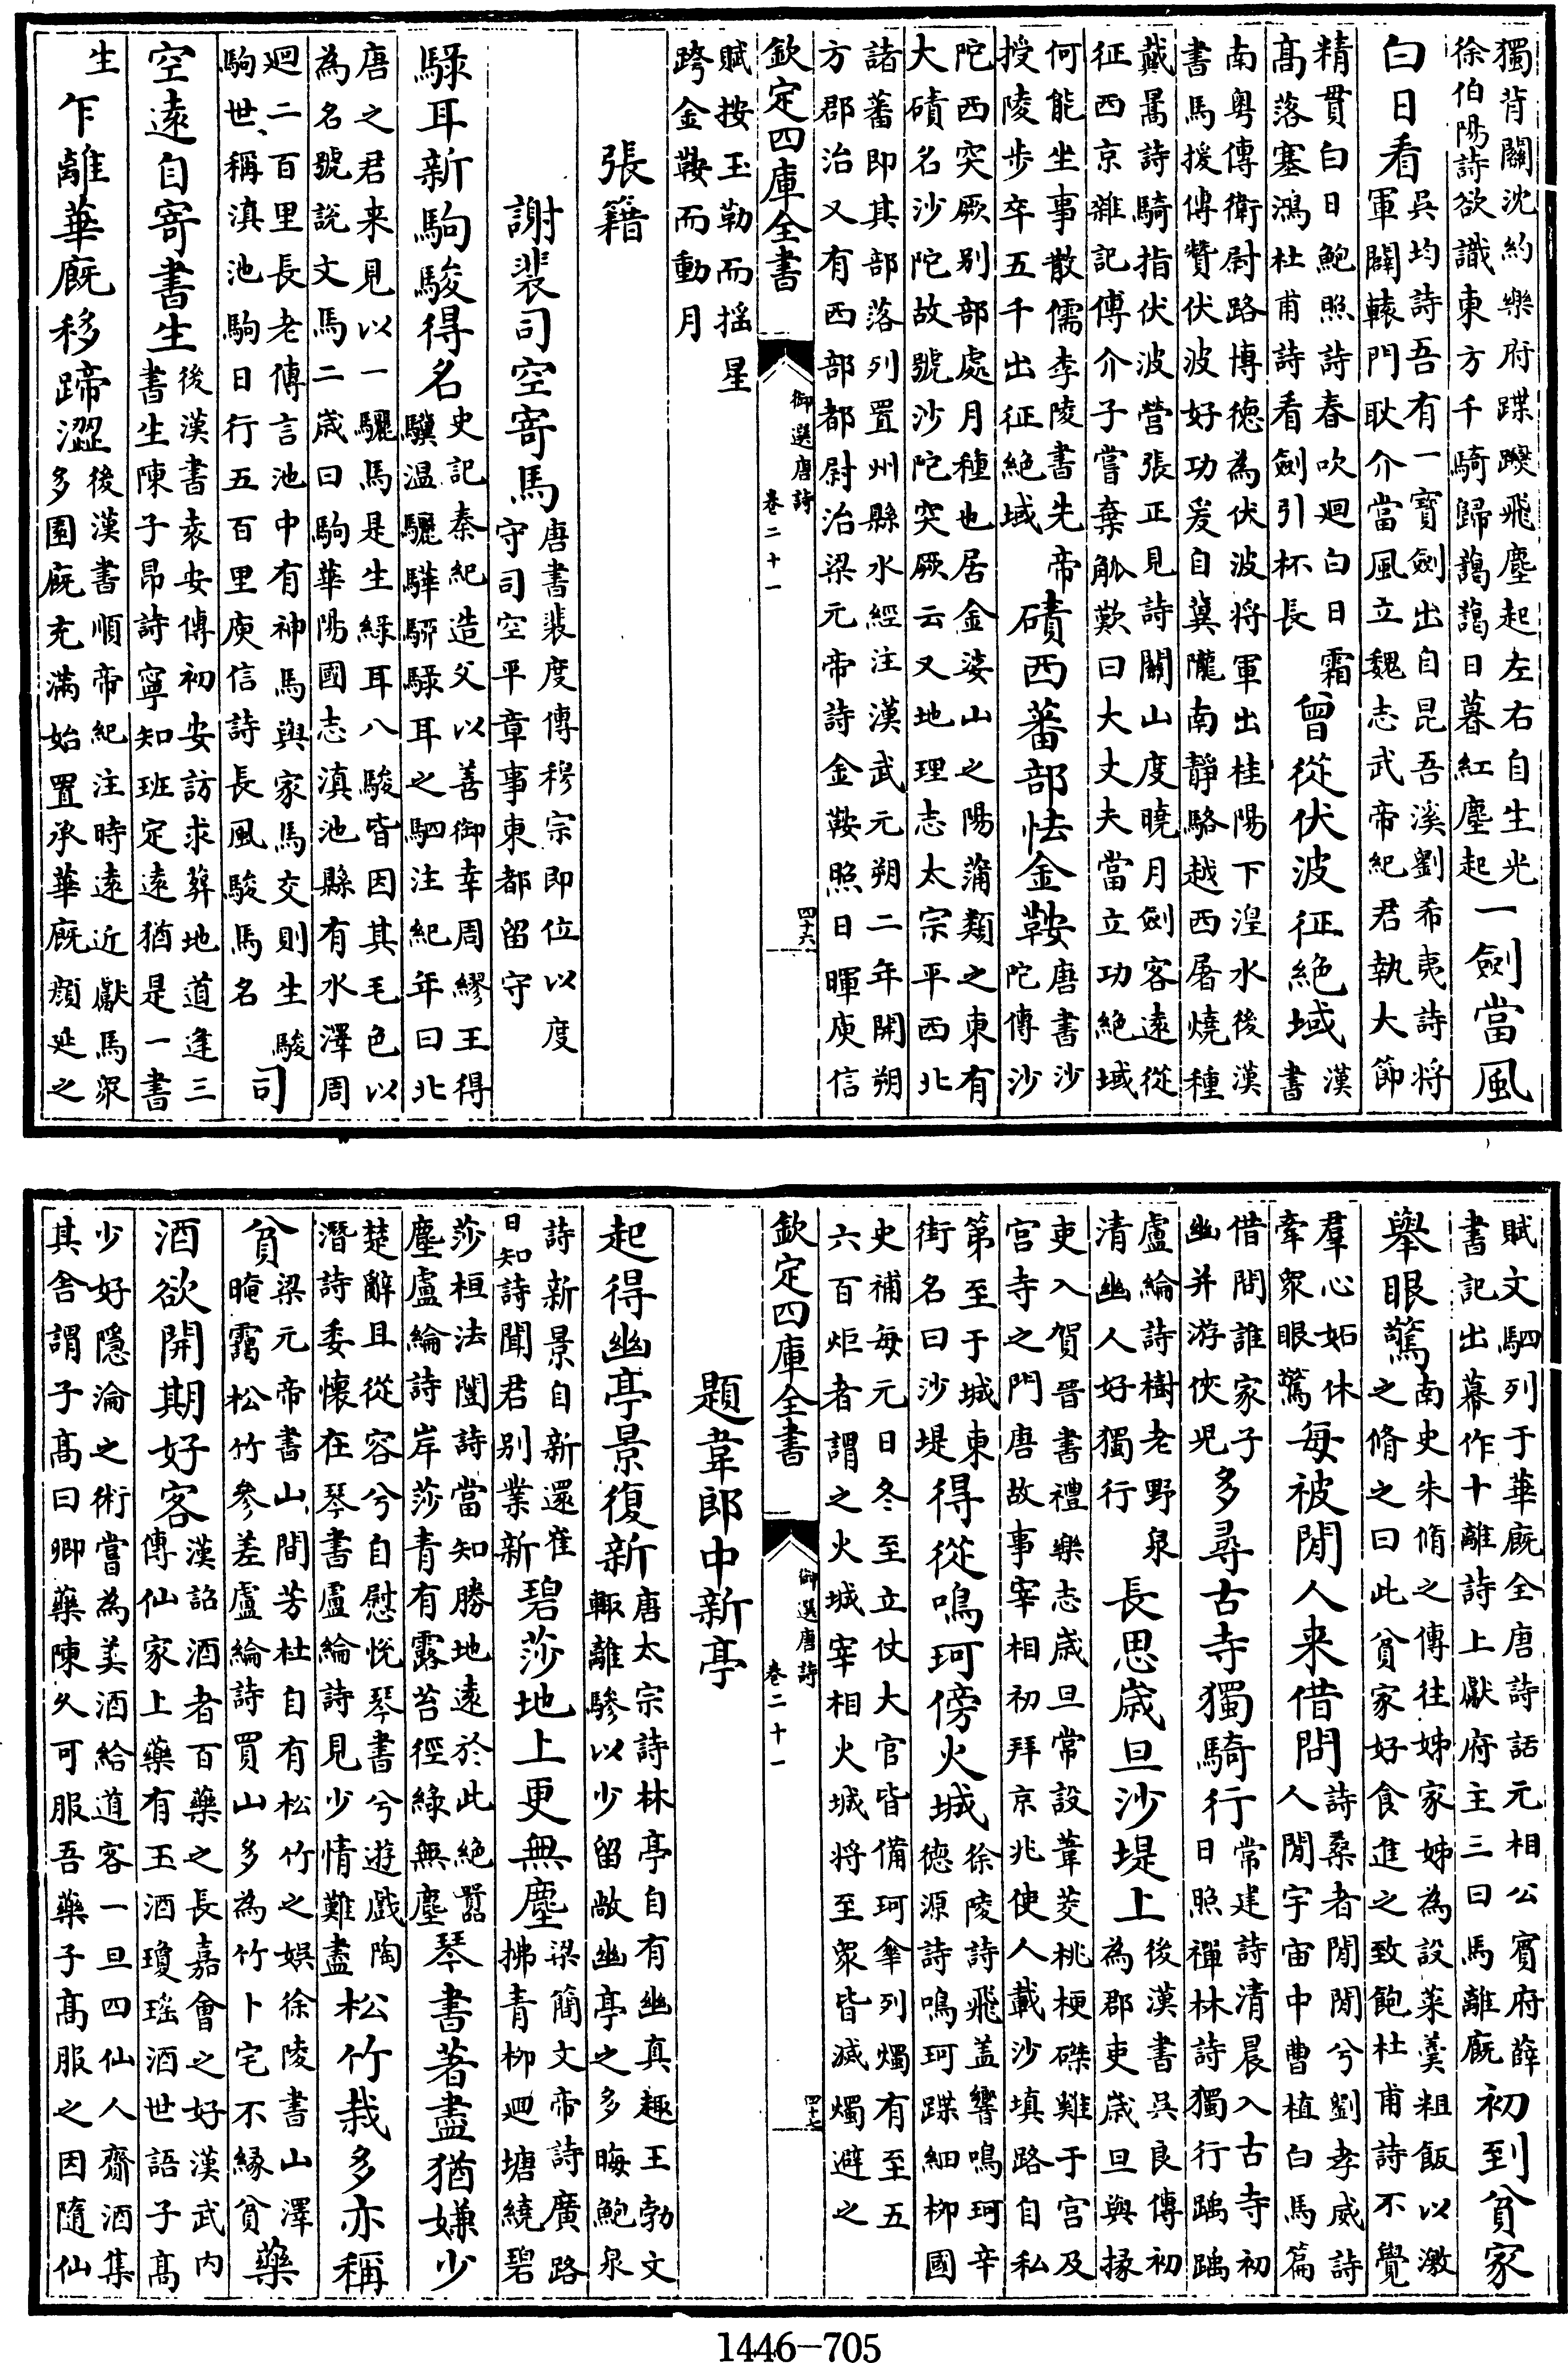 獨背關沈約樂府蹀躞飛塵起左右自生光
徐伯陽詩欲識東方千騎歸藹藹日暮紅塵起
一劍當風
白日看
吳均詩吾有一寶劍出自昆吾溪劉希夷詩將
軍闢轅門耿介當風立魏志武帝紀君執大節
精貫白日鮑照詩春吹廻白日霜
高落塞鴻杜甫詩看劍引杯長
曾從伏波征絶域
漢
書
南粤傳衛尉路博德為伏波将軍出桂陽下湟水後漢
書馬援傳贊伏波好功爰自冀隴南靜駱越西屠燒種
戴暠詩騎指伏波營張正見詩關山度曉月劍客遠從
征西京雜記傅介子嘗棄觚歎曰大丈夫當立功絶域
何能坐事散儒李陵書先帝
授陵步卒五千出征絶域
磧西蕃部怯金鞍
唐書沙
陀傳沙
陀西突厥别部處月種也居金娑山之陽蒲類之東有
大磧名沙陀故號沙陀突厥云又地理志太宗平西北
諸蕃即其部落列置州縣水經注漢武元朔二年開朔
方郡治又有西部都尉治梁元帝詩金鞍照日暉庾信
欽定四庫全書
御選唐詩
卷二十一
四十六
賦按玉勒而揺星
跨金鞍而動月
張籍
謝裴司空寄馬
唐書裴度傳穆宗即位以度
守司空平章事東都留守
騄耳新駒駿得名
史記秦紀造父以善御幸周繆王得
驥温驪驊騮騄耳之駟注紀年曰北
唐之君来見以一驪馬是生緑耳八駿皆因其毛色以
為名號説文馬二歲曰駒華陽國志滇池縣有水澤周
廻二百里長老傳言池中有神馬與家馬交則生駿
駒世稱滇池駒日行五百里庾信詩長風駿馬名
司
空遠自寄書生
後漢書袁安傳初安訪求葬地道逢三
書生陳子昂詩寧知班定遠猶是一書
生
乍離華廐移蹄澀
後漢書順帝紀注時遠近獻馬衆
多園廐充滿始置承華廐顔延之
賦文駟列于華廐全唐詩話元相公賓府薛
書記出幕作十離詩上獻府主三曰馬離廐
初到貧家
舉眼驚
南史朱脩之傳往姊家姊為設菜羹粗飯以激
之脩之曰此貧家好食進之致飽杜甫詩不覺
羣心妬休
牽衆眼驚
每被閒人来借問
詩桑者閒閒兮劉孝威詩
人閒宇宙中曹植白馬篇
借問誰家子
幽并游俠兒
多尋古寺獨騎行
常建詩清晨入古寺初
日照禪林詩獨行踽踽
盧綸詩樹老野泉
清幽人好獨行
長思歲旦沙堤上
後漢書吳良傳初
為郡吏歲旦與掾
吏入賀晉書禮樂志歲旦常設葦茭桃梗磔雞于宮及
宫寺之門唐故事宰相初拜京兆使人載沙填路自私
第至于城東
街名曰沙堤
得從鳴珂傍火城
徐陵詩飛蓋響鳴珂辛
德源詩鳴珂蹀細柳國
史補每元日冬至立仗大官皆備珂傘列燭有至五
六百炬者謂之火城宰相火城将至衆皆滅燭避之
欽定四庫全書
御選唐詩
卷二十一
四十七
題韋郎中新亭
起得幽亭景復新
唐太宗詩林亭自有幽真趣王勃文
輙離驂以少留敞幽亭之多晦鮑泉
詩新景自新還崔
日知詩聞君别業新
碧莎地上更無塵
梁簡文帝詩廣路
拂青柳廻塘繞碧
莎桓法闓詩當知勝地遠於此絶囂
塵盧綸詩岸莎青有露苔徑綠無塵
琴書著盡猶嫌少
楚辭且從容兮自慰悦琴書兮遊戲陶
潛詩委懷在琴書盧綸詩見少情難盡
松竹栽多亦稱
貧
梁元帝書山間芳杜自有松竹之娯徐陵書山澤
晻靄松竹參差盧綸詩買山多為竹卜宅不縁貧
藥
酒欲開期好客
漢詔酒者百藥之長嘉會之好漢武内
傳仙家上藥有玉酒瓊瑶酒世語子髙
少好隱淪之術嘗為美酒給道客一旦四仙人齎酒集
其舍謂子髙曰卿藥陳久可服吾藥子髙服之因隨仙
1446-705